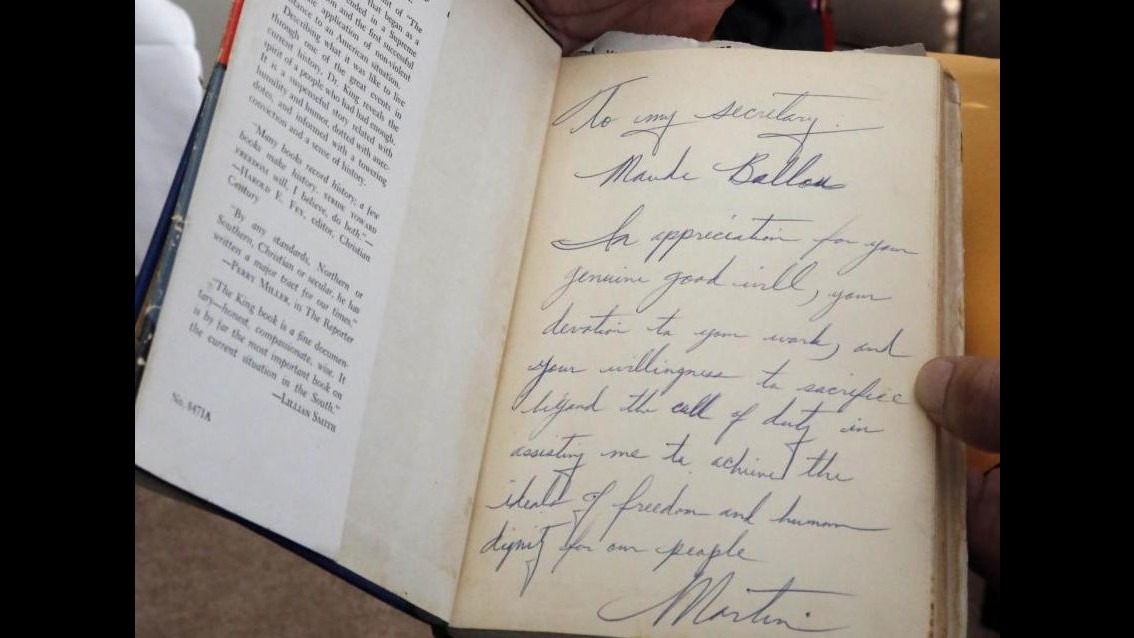 of "The
that began as a
ended in a Supreme
and the first successful
application of non-violent
resistance to an American situation.
Describing what it was like to live
through one of the great events in
current history, Dr. King reveals the
spirit of a people who had had enough.
It is a suspenseful story related with
humility and humor, dotted with anec-
dotes, and informed with a towering
conviction and a sense of history.
"Many books record history; a few
books make history. STRIDE TOWARD
FREEDOM will, I believe, do both."—
—HAROLD E. FEY, editor, Christian
Century
"By any standards, Northern or
Southern, Christian or secular, he has
written a major tract for our times."
—PERRY MILLER, in The Reporter
"The King book is a fine documen-
tary—honest, compassionate, wise. It
is by far the most important book on
the current situation in the South."
—LILLIAN SMITH
No. 8471A
To my secretary:
Maude Ballou
In appreciation for your
genuine good will, your
devotion to your work, and
your willingness to sacrifice
beyond the call of duty in
assisting me to achieve the
ideals of freedom and human
dignity for our people
Martin